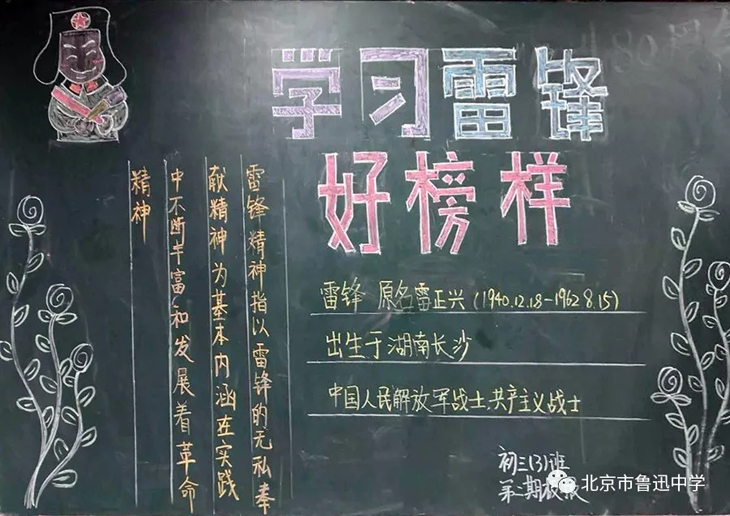 学习雷锋
好榜样
雷锋精神指以雷锋的无私奉
献精神为基本内涵在实践
中不断丰富和发展着革命
精神
雷锋 原名雷正兴(1940.12.18-1962.8.15)
出生于湖南长沙
中国人民解放军战士,共产主义战士
初三(3)班
第二期板报
北京市鲁迅中学